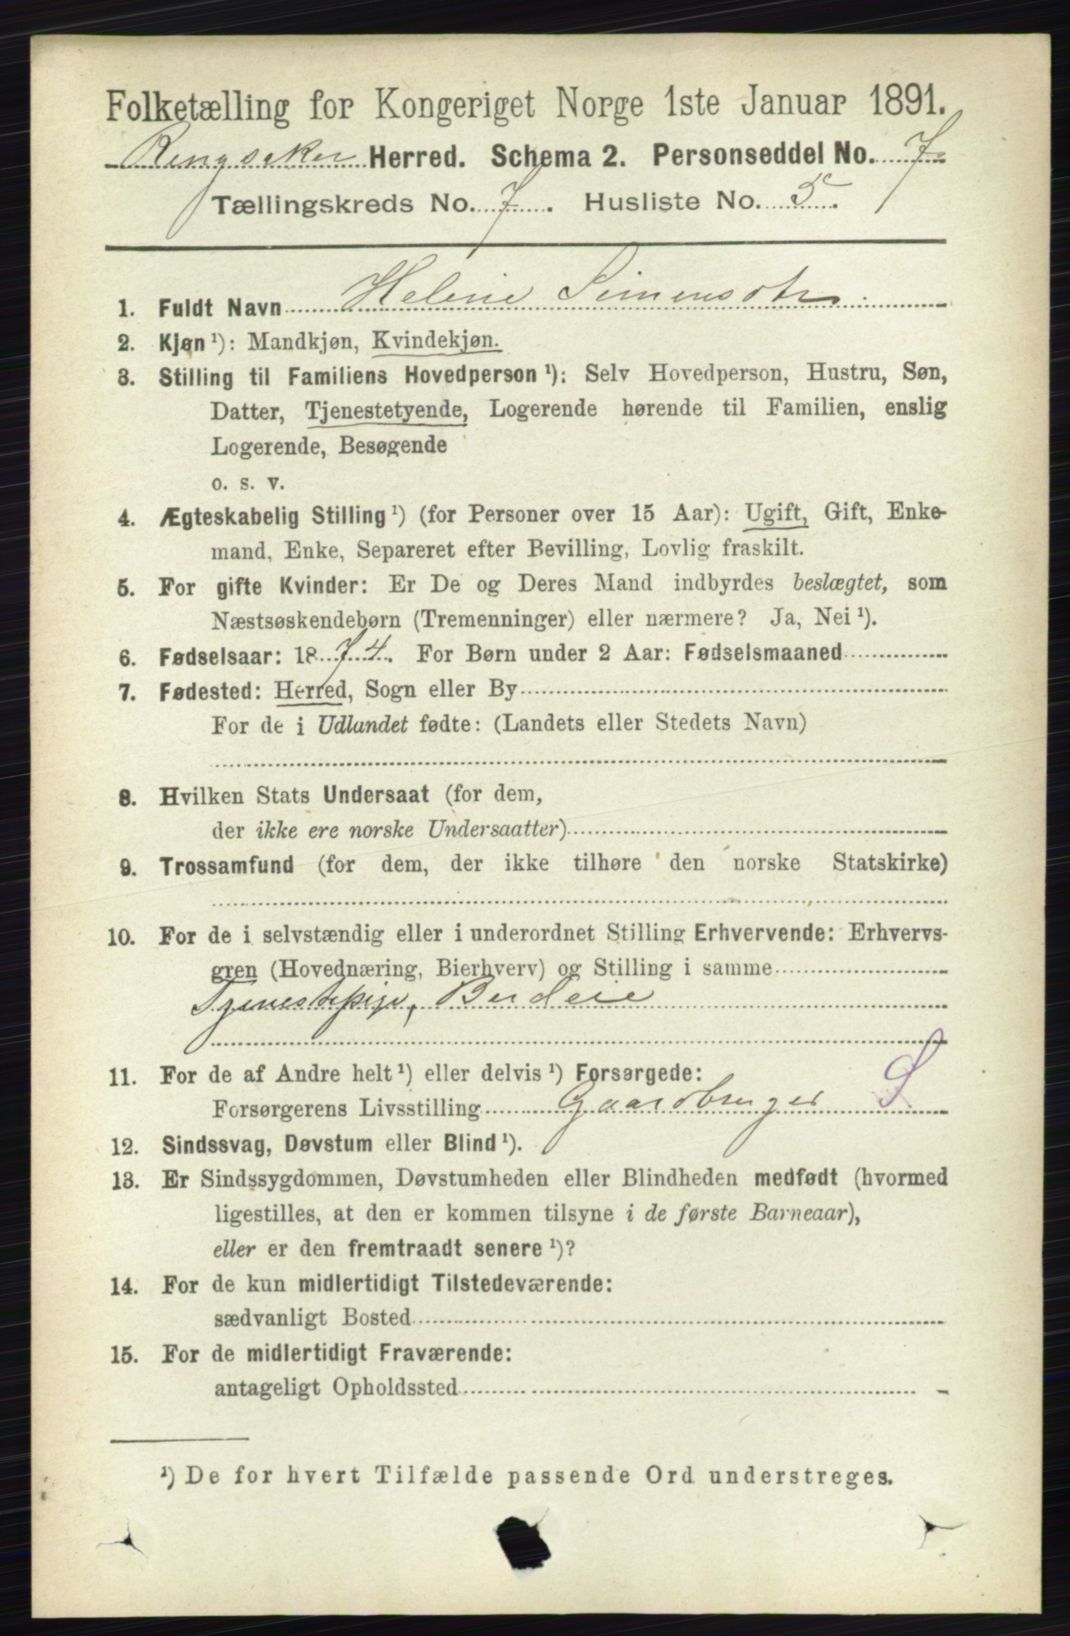 Folketælling for Kongeriget Norge 1ste Januar 1891.
Ringsaker Herred. Schema 2. Personseddel No. 7
Tællingskreds No. 7. Husliste No. 5.
1. Fuldt Navn Helene Simensdtr
2. Kjøn ¹): Mandkjøn, Kvindekjøn.
3. Stilling til Familiens Hovedperson ¹): Selv Hovedperson, Hustru, Søn,
Datter, Tjenestetyende, Logerende hørende til Familien, enslig
Logerende, Besøgende
o. s. v.
4. Ægteskabelig Stilling ¹) (for Personer over 15 Aar): Ugift, Gift, Enke-
mand, Enke, Separeret efter Bevilling, Lovlig fraskilt.
5. For gifte Kvinder: Er De og Deres Mand indbyrdes beslægtet, som
Næstsøskendebørn (Tremenninger) eller nærmere? Ja, Nei ¹).
6. Fødselsaar: 1874. For Børn under 2 Aar: Fødselsmaaned
7. Fødested: Herred, Sogn eller By
For de i Udlandet fødte: (Landets eller Stedets Navn)
8. Hvilken Stats Undersaat (for dem,
der ikke ere norske Undersaatter)
9. Trossamfund (for dem, der ikke tilhøre den norske Statskirke)
10. For de i selvstændig eller i underordnet Stilling Erhvervende: Erhvervs-
gren (Hovednæring, Bierhverv) og Stilling i samme
Tjenestepige, Budeie
11. For de af Andre helt ¹) eller delvis ¹) Forsørgede:
Forsørgerens Livsstilling Gaardbruger S
12. Sindssvag, Døvstum eller Blind ¹).
13. Er Sindssygdommen, Døvstumheden eller Blindheden medfødt (hvormed
ligestilles, at den er kommen tilsyne i de første Barneaar),
eller er den fremtraadt senere ¹)?
14. For de kun midlertidigt Tilstedeværende:
sædvanligt Bosted
15. For de midlertidigt Fraværende:
antageligt Opholdssted
¹) De for hvert Tilfælde passende Ord understreges.